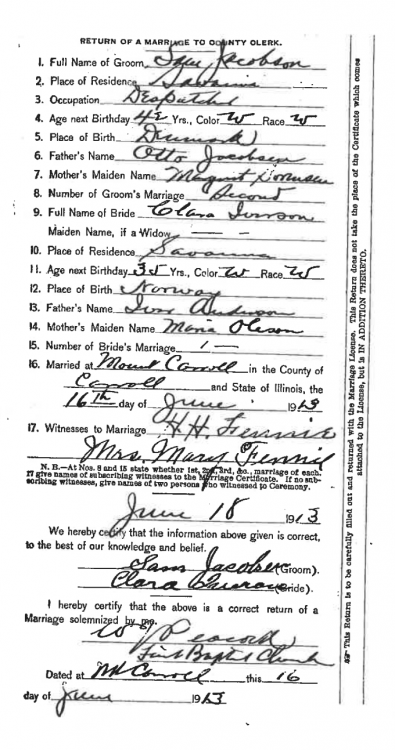 RETURN OF A MARRIAGE TO COUNTY CLERK.
1. Full Name of Groom Sam Jacobson
2. Place of Residence Savanna
3. Occupation Despatcher
4. Age next Birthday 42 Yrs., Color W Race W
5. Place of Birth Denmark
6. Father's Name Otto Jacobsen
7. Mother's Maiden Name Margaret
8. Number of Groom's Marriage Second
9. Full Name of Bride Clara Iverson
Maiden Name, if a Widow —— —
10. Place of Residence Savanna
11. Age next Birthday 35 Yrs., Color W Race W
12. Place of Birth Norway
13. Father's Name Iver Anderson
14. Mother's Maiden Name Maria Oleson
15. Number of Bride's Marriage 1 —
16. Married at Mount Carroll in the County of
Carroll and State of Illinois, the
16th day of June 1913
17. Witnesses to Marriage H H Fennie
Mrs. Mary
N. B.—At Nos. 8 and 15 state whether 1st, 2nd, 3rd, &c., marriage of each.
17 give names of subscribing witnesses to the Marriage Certificate. If no sub-
scribing witnesses, give names of two persons who witnessed to Ceremony.
June 18 1913
We hereby certify that the information above given is correct,
to the best of our knowledge and belief.
Sam Jacobsen (Groom).
Clara Iverson (Bride).
I hereby certify that the above is a correct return of a
Marriage solemnized by me.
W J Peacock
First Baptist Church
Dated at Mt Carroll this 16
day of June 1913
☞ This Return is to be carefully filled out and returned with the Marriage License. This Return does not take the place of the Certificate which comes
attached to the License, but is IN ADDITION THERETO.